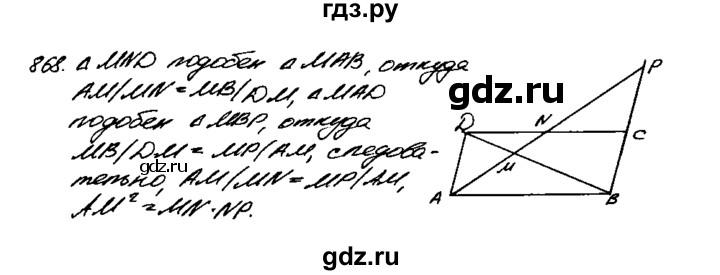 гдз.ру
868. △ MND подобен △ MAB, откуда
AM/MN = MB/DM, △ MAD
подобен △ MBP, откуда
MB/DM = MP/AM, следова-
тельно, AM/MN = MP/AM,
AM² = MN·NP.
gdz.ru
gdz.ru
P
D
N
C
M
A
B
gdz.ru